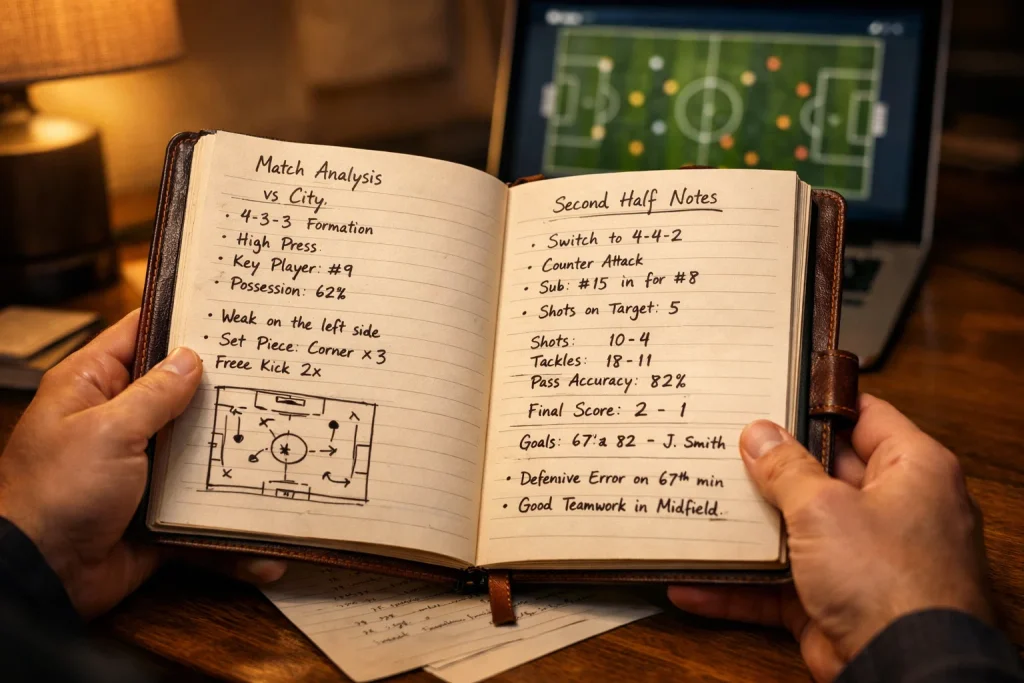 Match Analysis
vs City.
• 4-3-3 Formation
• High Press
• Key Player: #9
• Possession: 62%
• Weak on the left side
• Set Piece: Corner x 3
Freee Kick 2x
Second Half Notes
• Switch to 4-4-2
• Counter Attack
• Sub: #15 in for #8
• Shots on Target: 5
Shots: 10-4
Tackles: 18-11
Pass Accuracy: 82%
Final Score: 2 - 1
Goals: 82 - J. Smith
• Defensive Error on 67th min
• Good Teamwork in Midfield.